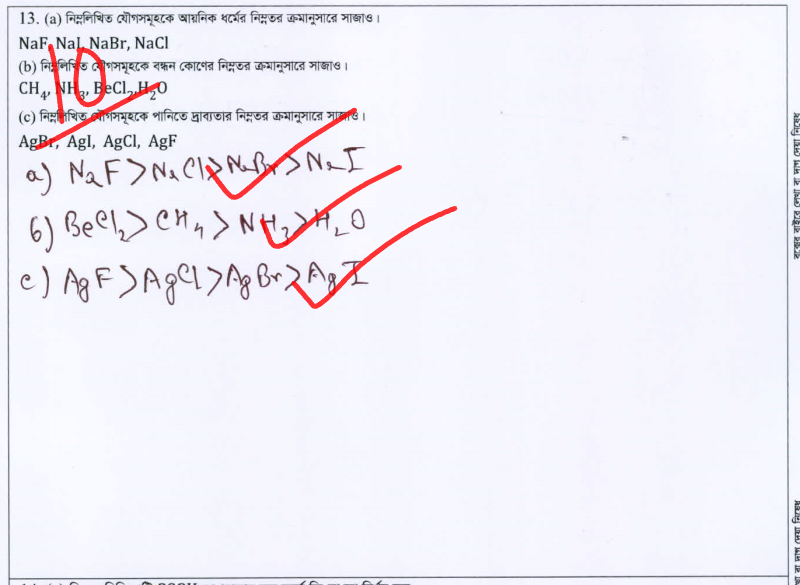 13. (a) নিম্নলিখিত যৌগসমূহকে আয়নিক ধর্মের নিম্নতর ক্রমানুসারে সাজাও।
NaF, NaI, NaBr, NaCl
(b) নিম্নলিখিত যৌগসমূহকে বন্ধন কোণের নিম্নতর ক্রমানুসারে সাজাও।
CH₄, NH₃, BeCl₂, H₂O
(c) নিম্নলিখিত যৌগসমূহকে পানিতে দ্রাব্যতার নিম্নতর ক্রমানুসারে সাজাও।
AgBr, AgI, AgCl, AgF
10
a) NaF > NaCl > NaBr > NaI
b) BeCl₂ > CH₄ > NH₃ > H₂O
c) AgF > AgCl > AgBr > AgI
বক্সের বাইরে লেখা বা দাগ দেয়া নিষেধ
বা দাগ দেয়া নিষেধ